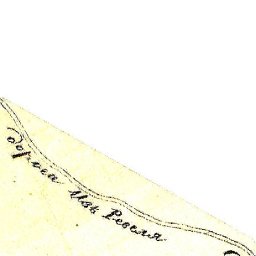 дорогаи Изъ Ревеля